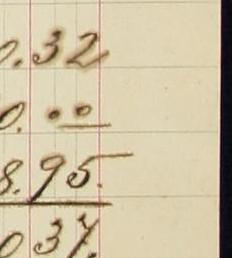 0.32
0...
8.95.
037.